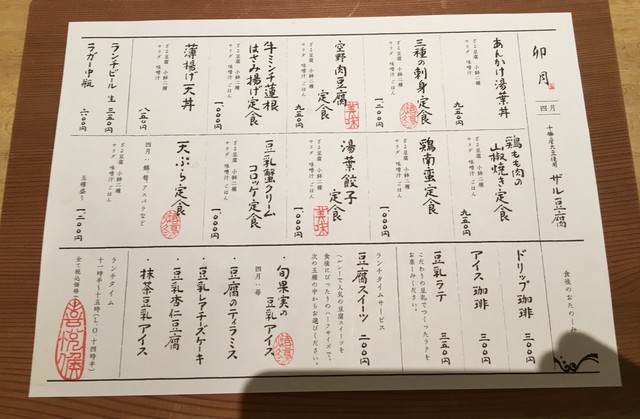 卯月
四月
十勝産大豆使用 ザル豆腐
あんかけ湯葉丼
ざる豆腐 小鉢二種
サラダ 味噌汁
九五〇円
三種の刺身定食
ざる豆腐 小鉢二種
サラダ 味噌汁 ごはん
一二〇〇円
空野肉豆腐
定食
美味
ざる豆腐 小鉢二種
サラダ 味噌汁 ごはん
九五〇円
牛ミンチ蓮根
はさみ揚げ定食
ざる豆腐 小鉢二種
サラダ 味噌汁 ごはん
一〇〇〇円
薄揚げ天丼
ざる豆腐 小鉢二種
サラダ 味噌汁
八五〇円
ランチビール 生 三五〇円
ラガー中瓶 六〇〇円
鶏もも肉の
山椒焼き定食
ざる豆腐 小鉢二種
サラダ 味噌汁 ごはん
九五〇円
鶏南蛮定食
ざる豆腐 小鉢二種
サラダ 味噌汁 ごはん
九五〇円
湯葉餃子
定食
美味
ざる豆腐 小鉢二種
サラダ 味噌汁 ごはん
豆乳蟹クリーム
コロッケ定食
ざる豆腐 小鉢二種
サラダ 味噌汁 ごはん
一〇〇〇円
天ぷら定食
四月‥鯵、筍、アスパラなど
五種盛り 一二〇〇円
食後のおたのしみ
ドリップ珈琲 三〇〇円
アイス珈琲 三〇〇円
豆乳ラテ 三五〇円
こだわりの豆乳でつくったラテを
お楽しみください。
ランチタイムサービス
豆腐スイーツ 二〇〇円
ヘルシーで人気の豆腐スイーツを
食後にぴったりのハーフサイズで、
次の五種の中からお選びください。
・旬果実の
豆乳アイス
四月‥苺
・豆腐のティラミス
・豆乳レアチーズケーキ
・豆乳杏仁豆腐
・抹茶豆乳アイス
ランチタイム
十一時半〜十五時（L.O. 十四時半）
全て税込価格